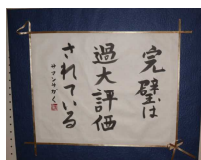 完璧は
過大評価
されている